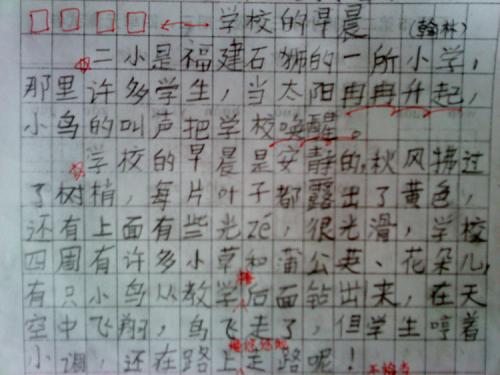 学校的早晨 (翰林)
二小是福建石狮的一所小学，
那里许多学生，当太阳冉冉升起，
小鸟的叫声把学校唤醒。
学校的早晨是安静的，秋风拂过
了树梢，每片叶子都露出了黄色，
还有上面有些光zé，很光滑，学校
四周有许多小草和蒲公英、花朵儿，
有只小鸟从教学楼后面钻出来，在天
空中飞翔，鸟飞走了，但学生哼着
小调，还在路上走路呢！